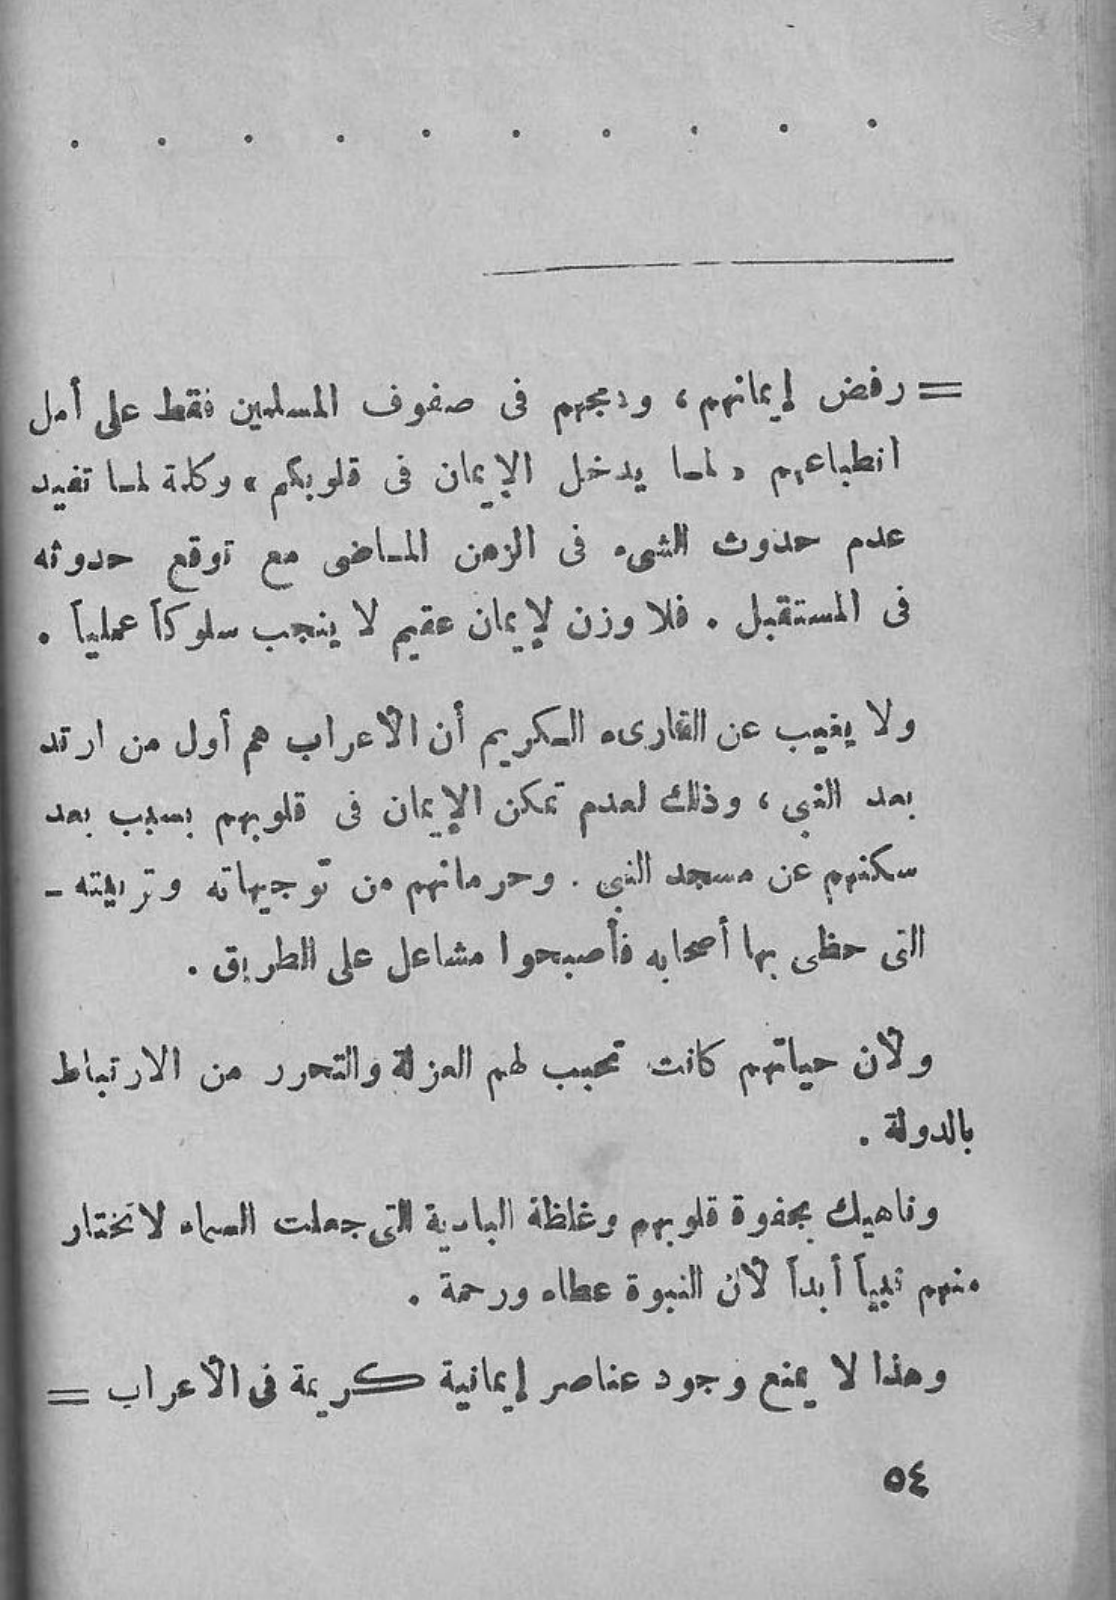 . . . . . . . . . .
= رفض إيمانهم ، ودمجهم فى صفوف المسلمين فقط على أمل
انطباعهم « لما يدخل الإيمان فى قلوبكم » وكلمة لما تفيد
عدم حدوث الشىء فى الزمن الماضى مع توقع حدوثه
فى المستقبل . فلا وزن لإيمان عقيم لا ينجب سلوكاً عملياً .
ولا يغيب عن القارىء الكريم أن الأعراب هم أول من ارتد
بعد النبى ، وذلك لعدم تمكن الإيمان فى قلوبهم بسبب بعد
سكنهم عن مسجد النبى . وحرمانهم من توجيهاته وتربيته -
التى حظى بها أصحابه فأصبحوا مشاعل على الطريق .
ولأن حياتهم كانت تحبب لهم العزلة والتحرر من الارتباط
بالدولة .
وناهيك بجفوة قلوبهم وغلظة البادية التى جعلت السماء لا تختار
منهم نبياً أبداً لأن النبوة عطاء ورحمة .
وهذا لا يمنع وجود عناصر إيمانية كريمة فى الأعراب =
٥٤